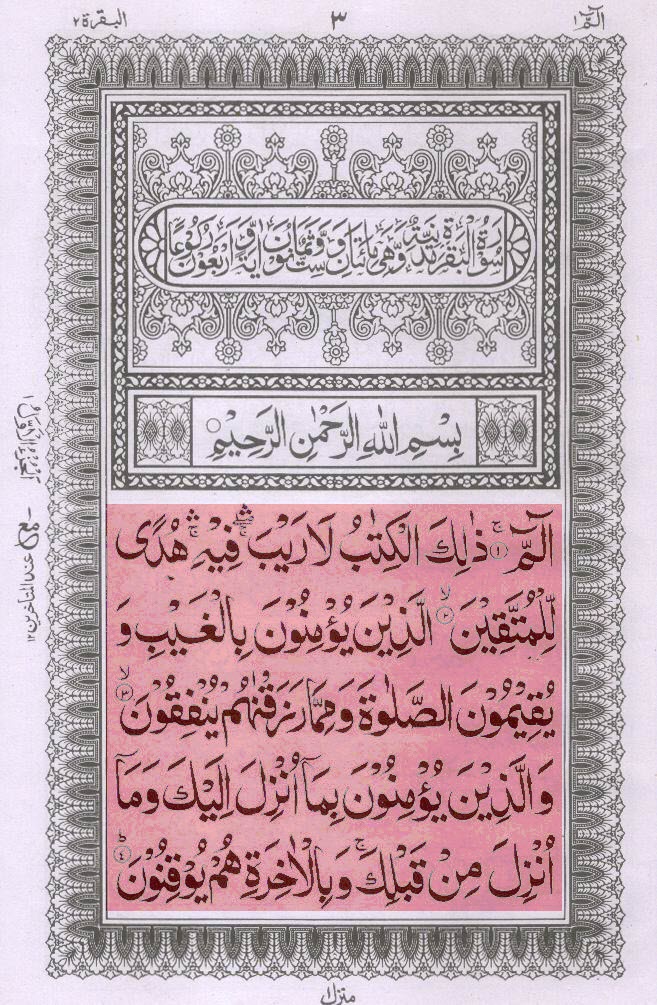 الٓمّٓ ١
٣
البقرة ٢
سُوْرَةُ الْبَقَرَةِ مَدَنِيَّةٌ وَّهِىَ مِائَتَانِ وَسِتٌّ وَّثَمَانُوْنَ اٰيَةً وَّاَرْبَعُوْنَ رُكُوْعًا
بِسْمِ اللّٰهِ الرَّحْمٰنِ الرَّحِيْمِ
الٓمّٓ ۚ﴿١﴾ ذٰلِكَ الْكِتٰبُ لَا رَيْبَ ۛۖۚ فِيْهِ ۛۚ هُدًى
لِّلْمُتَّقِيْنَ ۙ﴿٢﴾ الَّذِيْنَ يُؤْمِنُوْنَ بِالْغَيْبِ وَ
يُقِيْمُوْنَ الصَّلٰوةَ وَمِمَّا رَزَقْنٰهُمْ يُنْفِقُوْنَ ۙ﴿٣﴾
وَالَّذِيْنَ يُؤْمِنُوْنَ بِمَآ اُنْزِلَ اِلَيْكَ وَمَآ
اُنْزِلَ مِنْ قَبْلِكَ ۚ وَبِالْاٰخِرَةِ هُمْ يُوْقِنُوْنَ ؕ﴿٤﴾
منزل ١